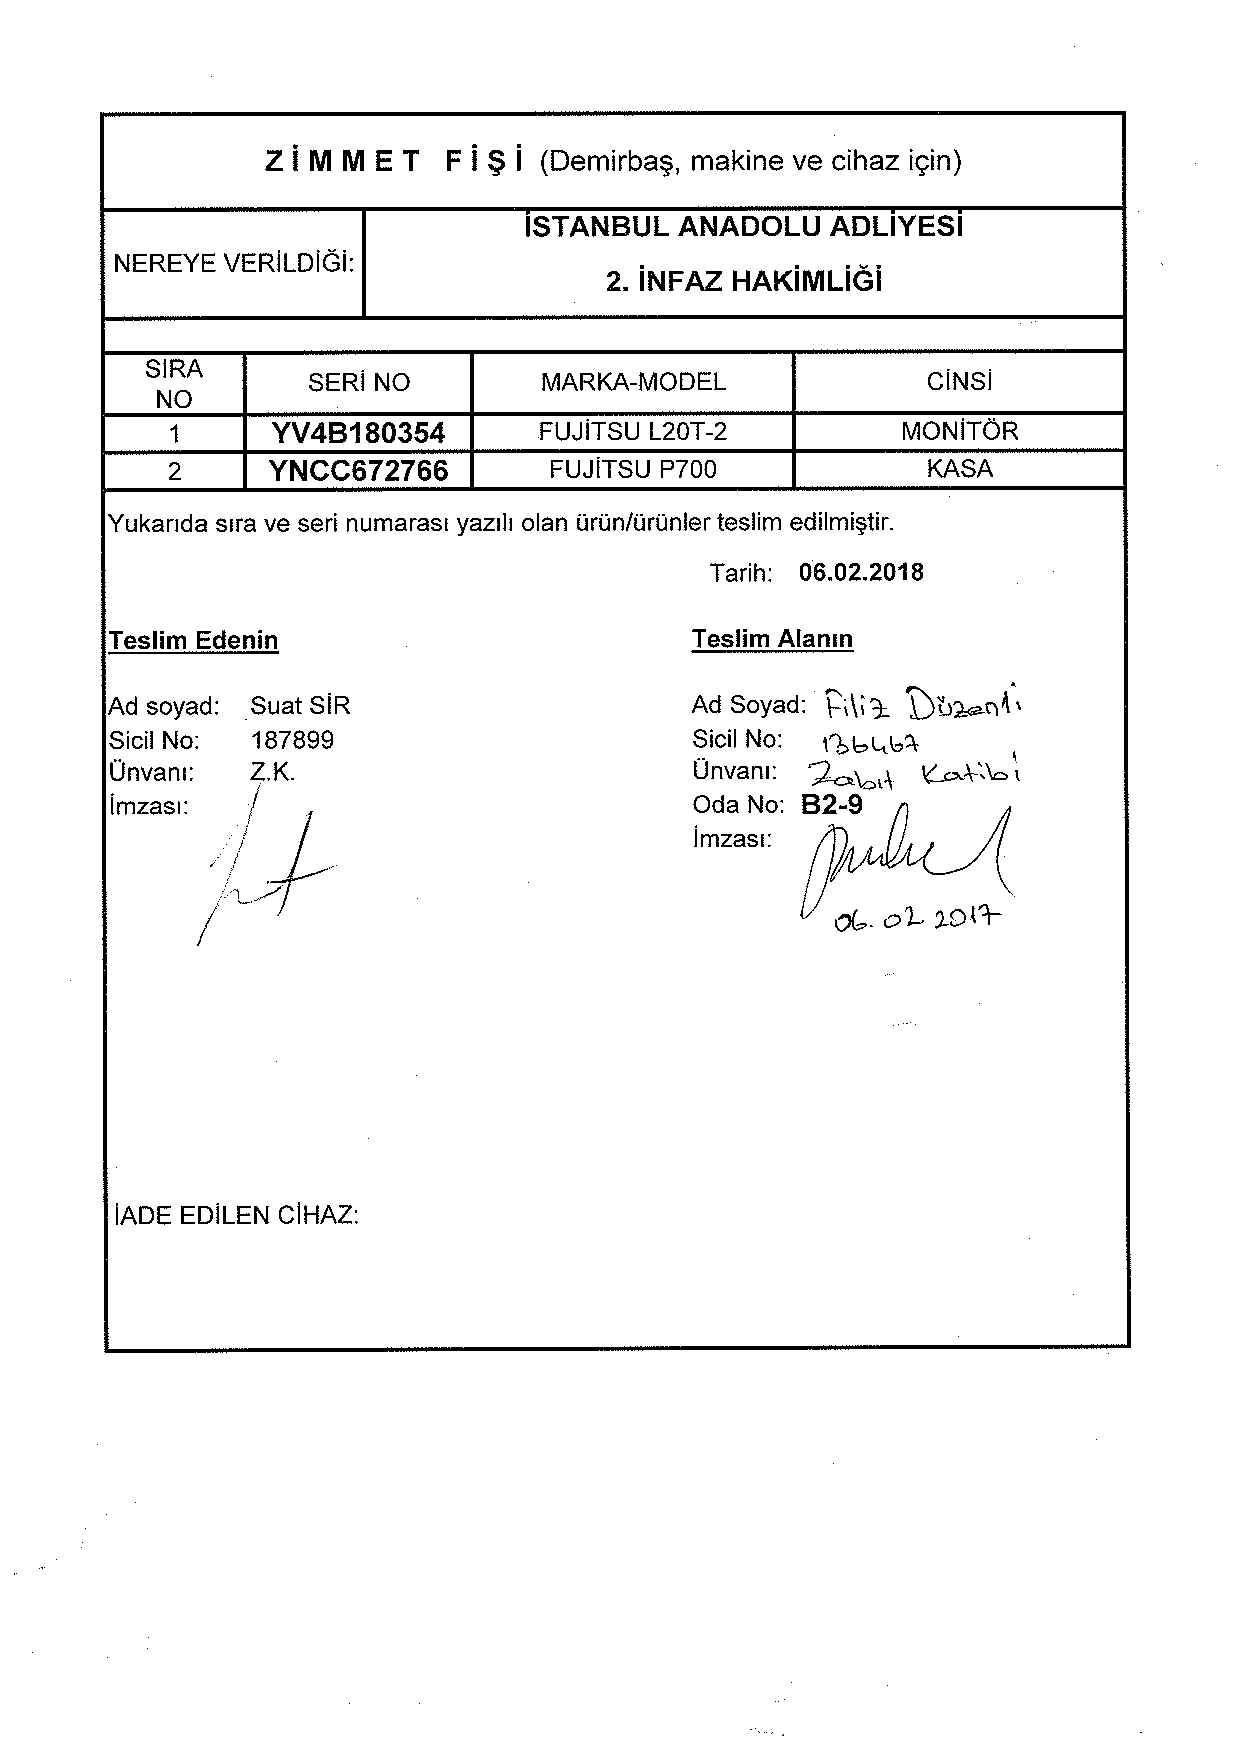 ZİMMET FİŞİ (Demirbaş, makine ve cihaz için)
NEREYE VERİLDİĞİ:
İSTANBUL ANADOLU ADLİYESİ
2. İNFAZ HAKİMLİĞİ
SIRA NO SERİ NO MARKA-MODEL CİNSİ
1 YV4B180354 FUJİTSU L20T-2 MONİTÖR
2 YNCC672766 FUJİTSU P700 KASA
Yukarıda sıra ve seri numarası yazılı olan ürün/ürünler teslim edilmiştir.
Tarih: 06.02.2018
Teslim Edenin
Ad soyad: Suat SİR
Sicil No: 187899
Ünvanı: Z.K.
İmzası:
Teslim Alanın
Ad Soyad: Filiz
Sicil No:
Ünvanı: Zabıt Katibi
Oda No: B2-9
İmzası:
06.02.2017
İADE EDİLEN CİHAZ: